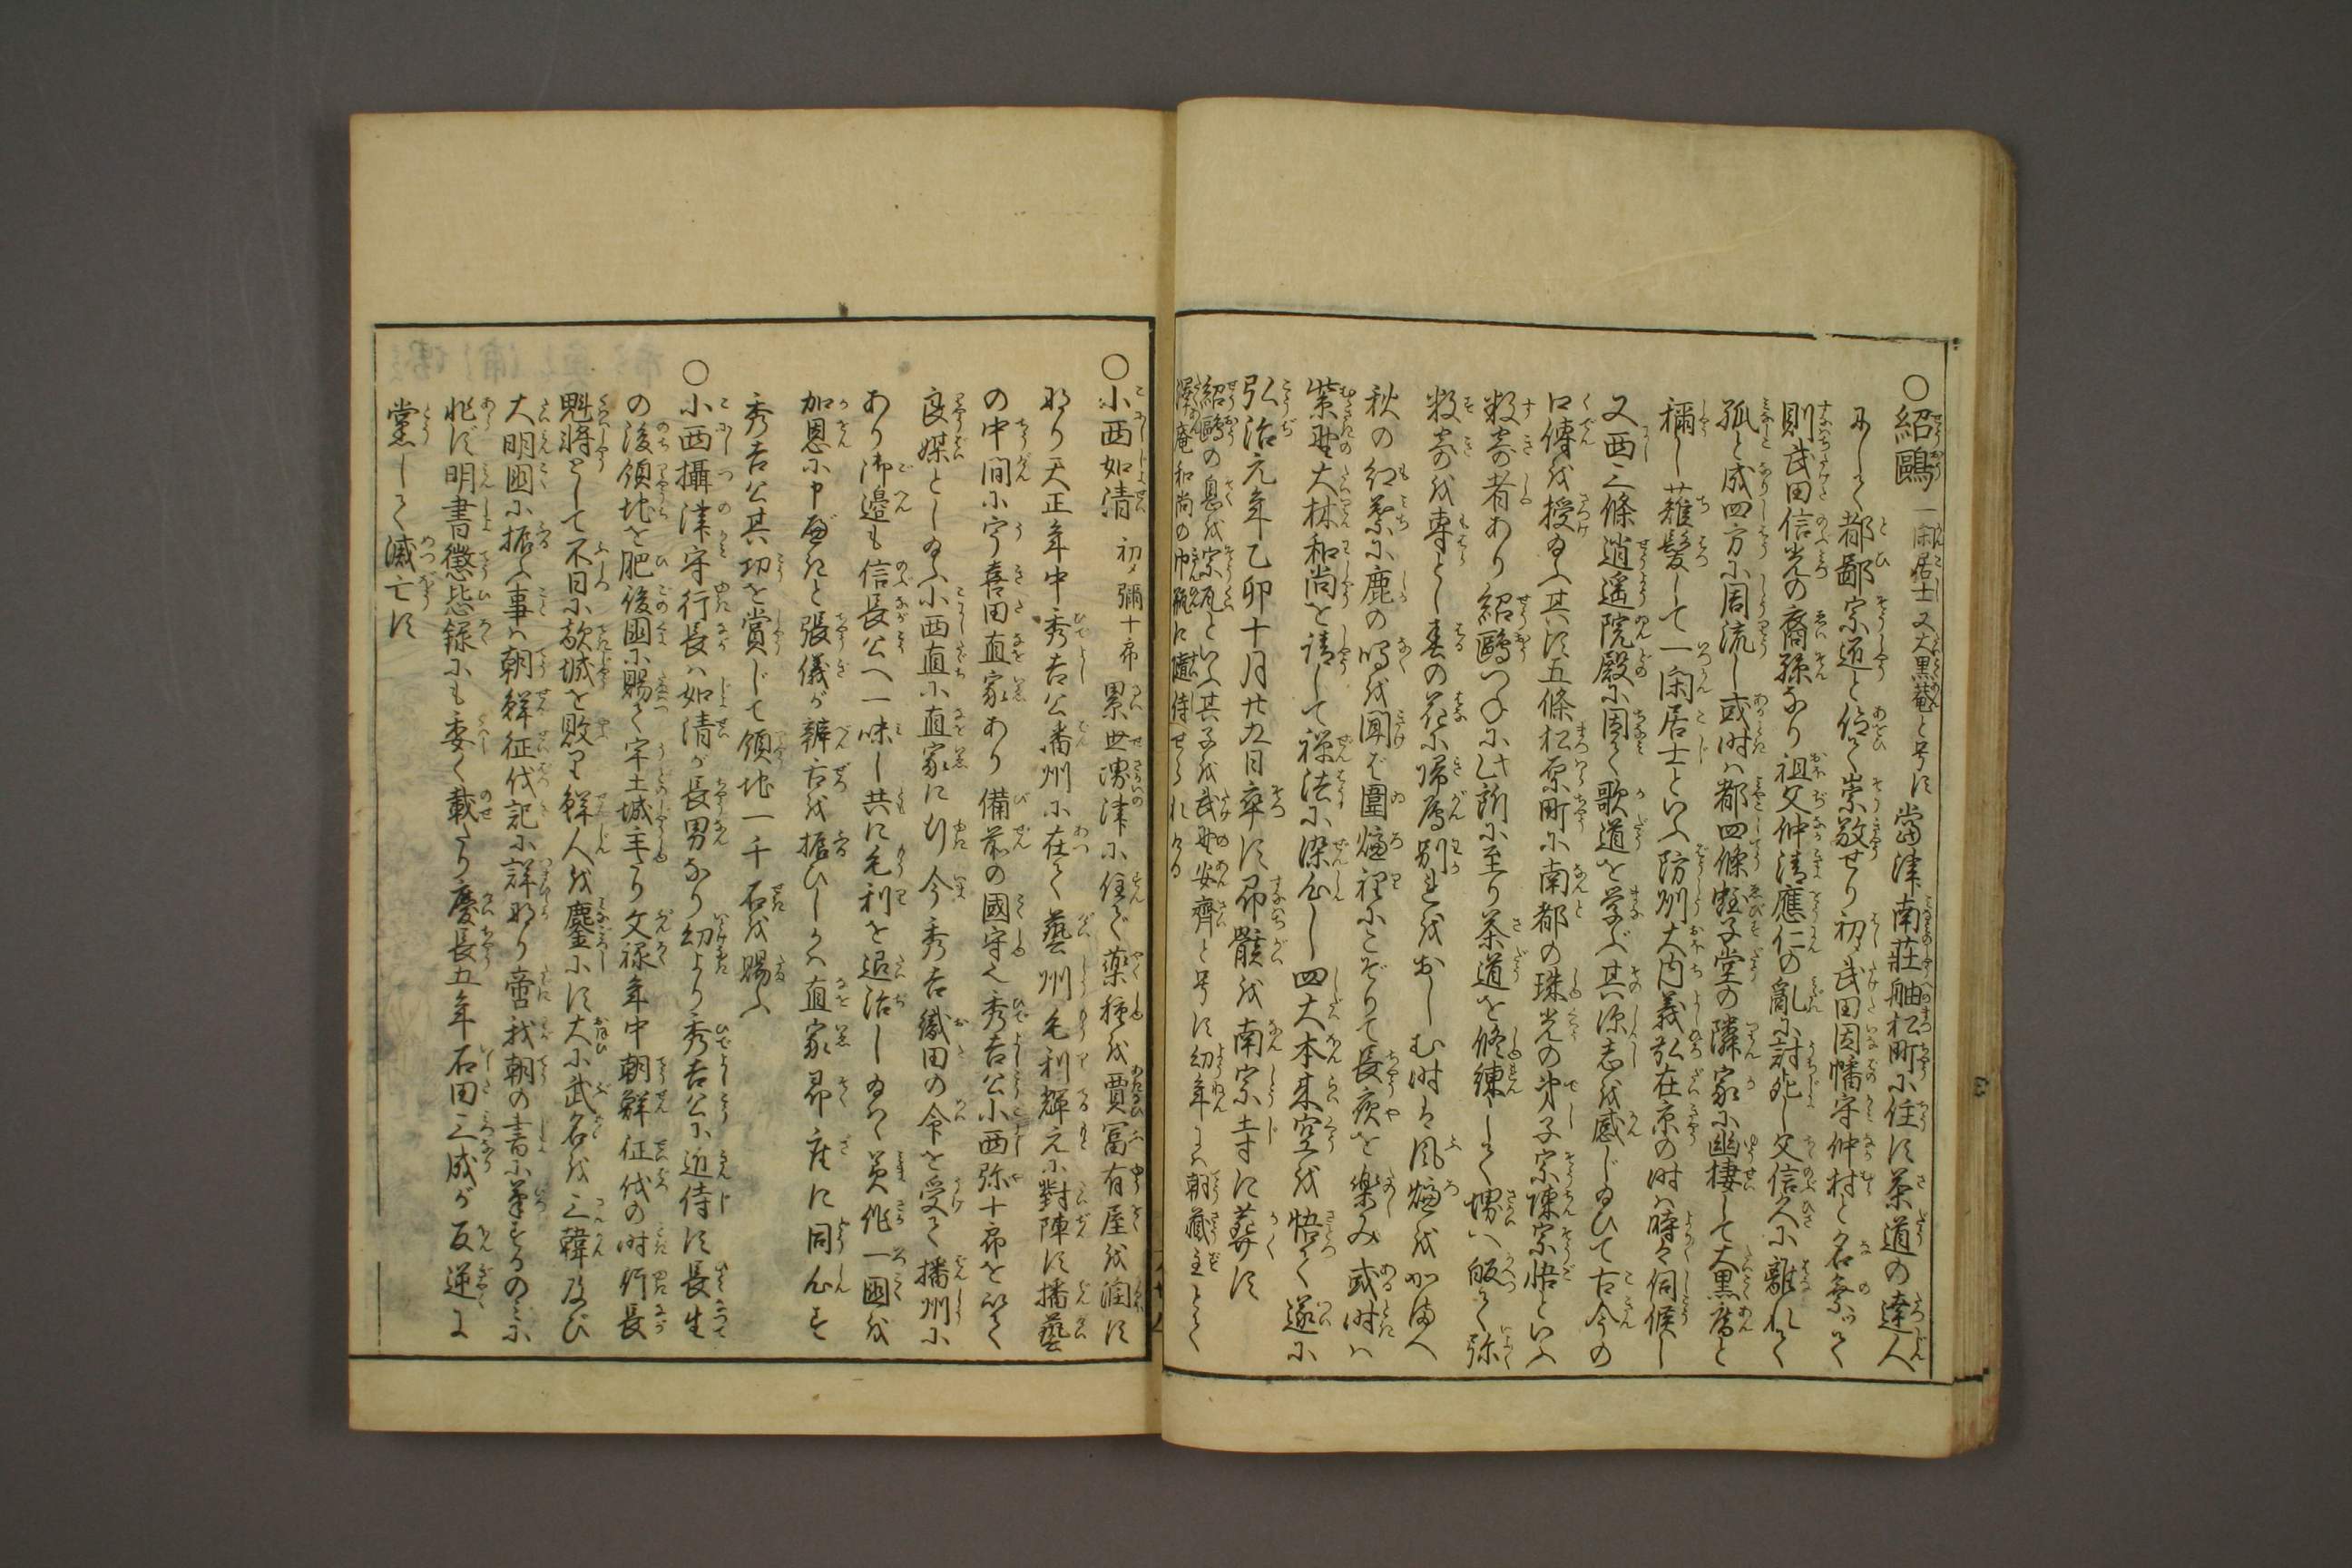 ○紹鷗 一閑居士又大黒菴と号す 當津南荘舳松町に住す茶道の達人
にして都鄙宗道と信て崇敬せり初ㇵ武田因幡守仲村と名乗て
則武田信光の裔孫なり祖父仲清應仁の亂に討死し父信久に離れて
孤と成四方に周流し或時ハ都四條蛭子堂の隣家に幽棲して大黒庵と
稱し薙髪して一閑居士といふ防州大内義弘在京の時ハ時々伺候し
又西三條逍遥院殿に因て歌道を学ぶ其深志を感じ給ひて古今の
口傳を授給ふ其頃五條松原町に南都の珠光の弟子宗陳宗悟といふ
数寄者あり紹鷗つねに此所に至り茶道を修練して堺へ皈て弥
数寄を専とし春の花に帰雁別まをおしむ時は風爐をかまへ
秋の紅葉に鹿の鳴を聞ば圍爐裡にこぞりて長夜を楽み或時ハ
紫野大林和尚を請して禅法に染心し四大本来空を悟て遂に
弘治元年乙卯十月廿九日卒す即骸を南宗寺に葬す
紹鷗の息を宗瓦といふ其子を武野安齊と号す幼年にハ朝蔵主とて
澤庵和尚の巾瓶に隨侍せられける
○小西如清 初ㇵ彌十郎 累世堺津に住て薬種を賈冨有屋を潤す
なり天正年中秀吉公播州に在て藝州毛利輝元に對陣す播藝
の中間に宇喜田直家あり備前の國守也秀吉公小西弥十郎を以て
良媒とし給ふ小西直に直家に行今秀吉織田の令を受て播州に
あり御邊も信長公へ一味し共に毛利を退治し給はゞ美作一國を
加恩に申べきと張儀が辨舌を振ひしかハ直家即座に同心す
秀吉公其功を賞じて領地一千石を賜ふ
○小西攝津守行長ハ如清が長男なり幼より秀吉公に近侍す長生
の後領地を肥後國に賜て宇土城主たり文禄年中朝鮮征伐の時行長
魁将として不日に敵城を敗り鮮人を鏖にす大に武名を三韓及び
大明國に振ふ事ハ朝鮮征伐記に詳なり啻我朝の書に筆するのみに
非ず明書懲毖録にも委く載たり慶長五年石田三成が反逆に
黨して滅亡す